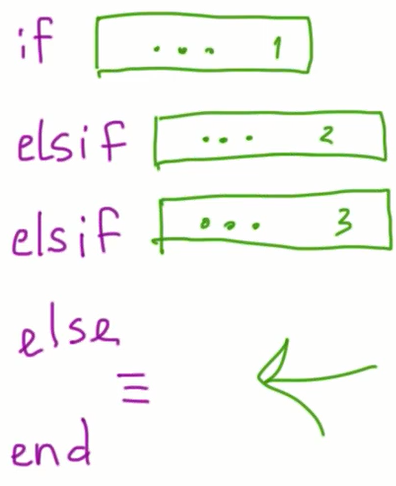 if ... 1
elsif ... 2
elsif ... 3
else
end